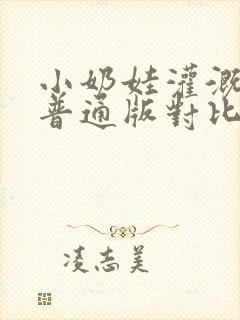 小奶娃灌溉
普通版對比
凌志美